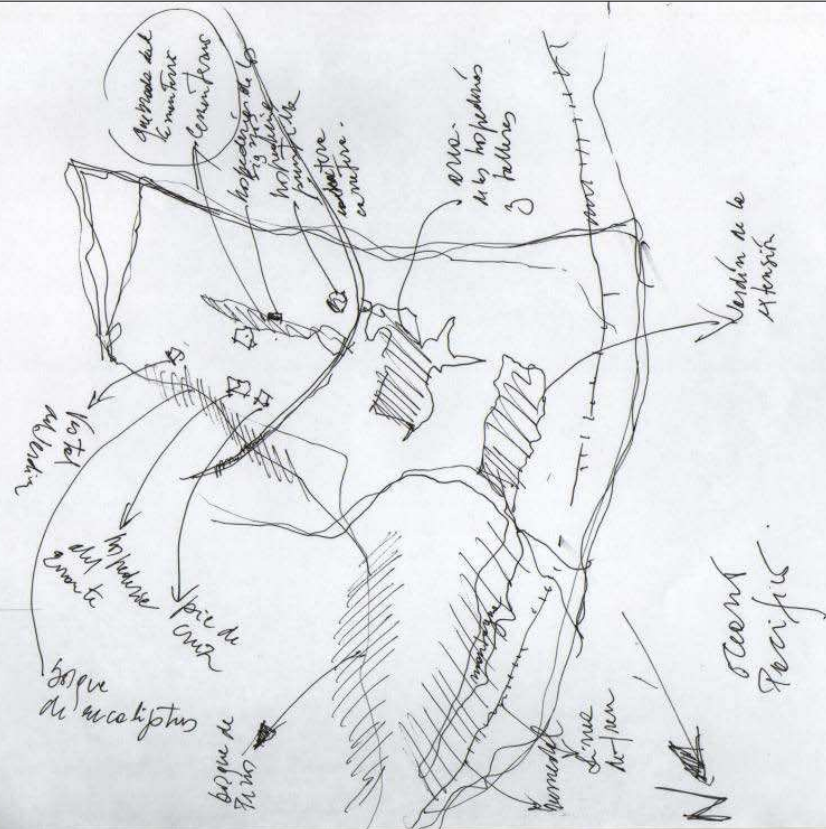 quebrada del
cementerio
cementerio
hospederías de los
signos
hospedería
puntilla
carretera.
area.
de las hospederías
y talleres
Jardín de la
extensión
Vestal
del Jardín
hospedería
del
errante
pie de
cruz
bosque
de eucaliptus
bosque de
Pinos
humedal
línea
de tren
N
Oceano
Pacífico.